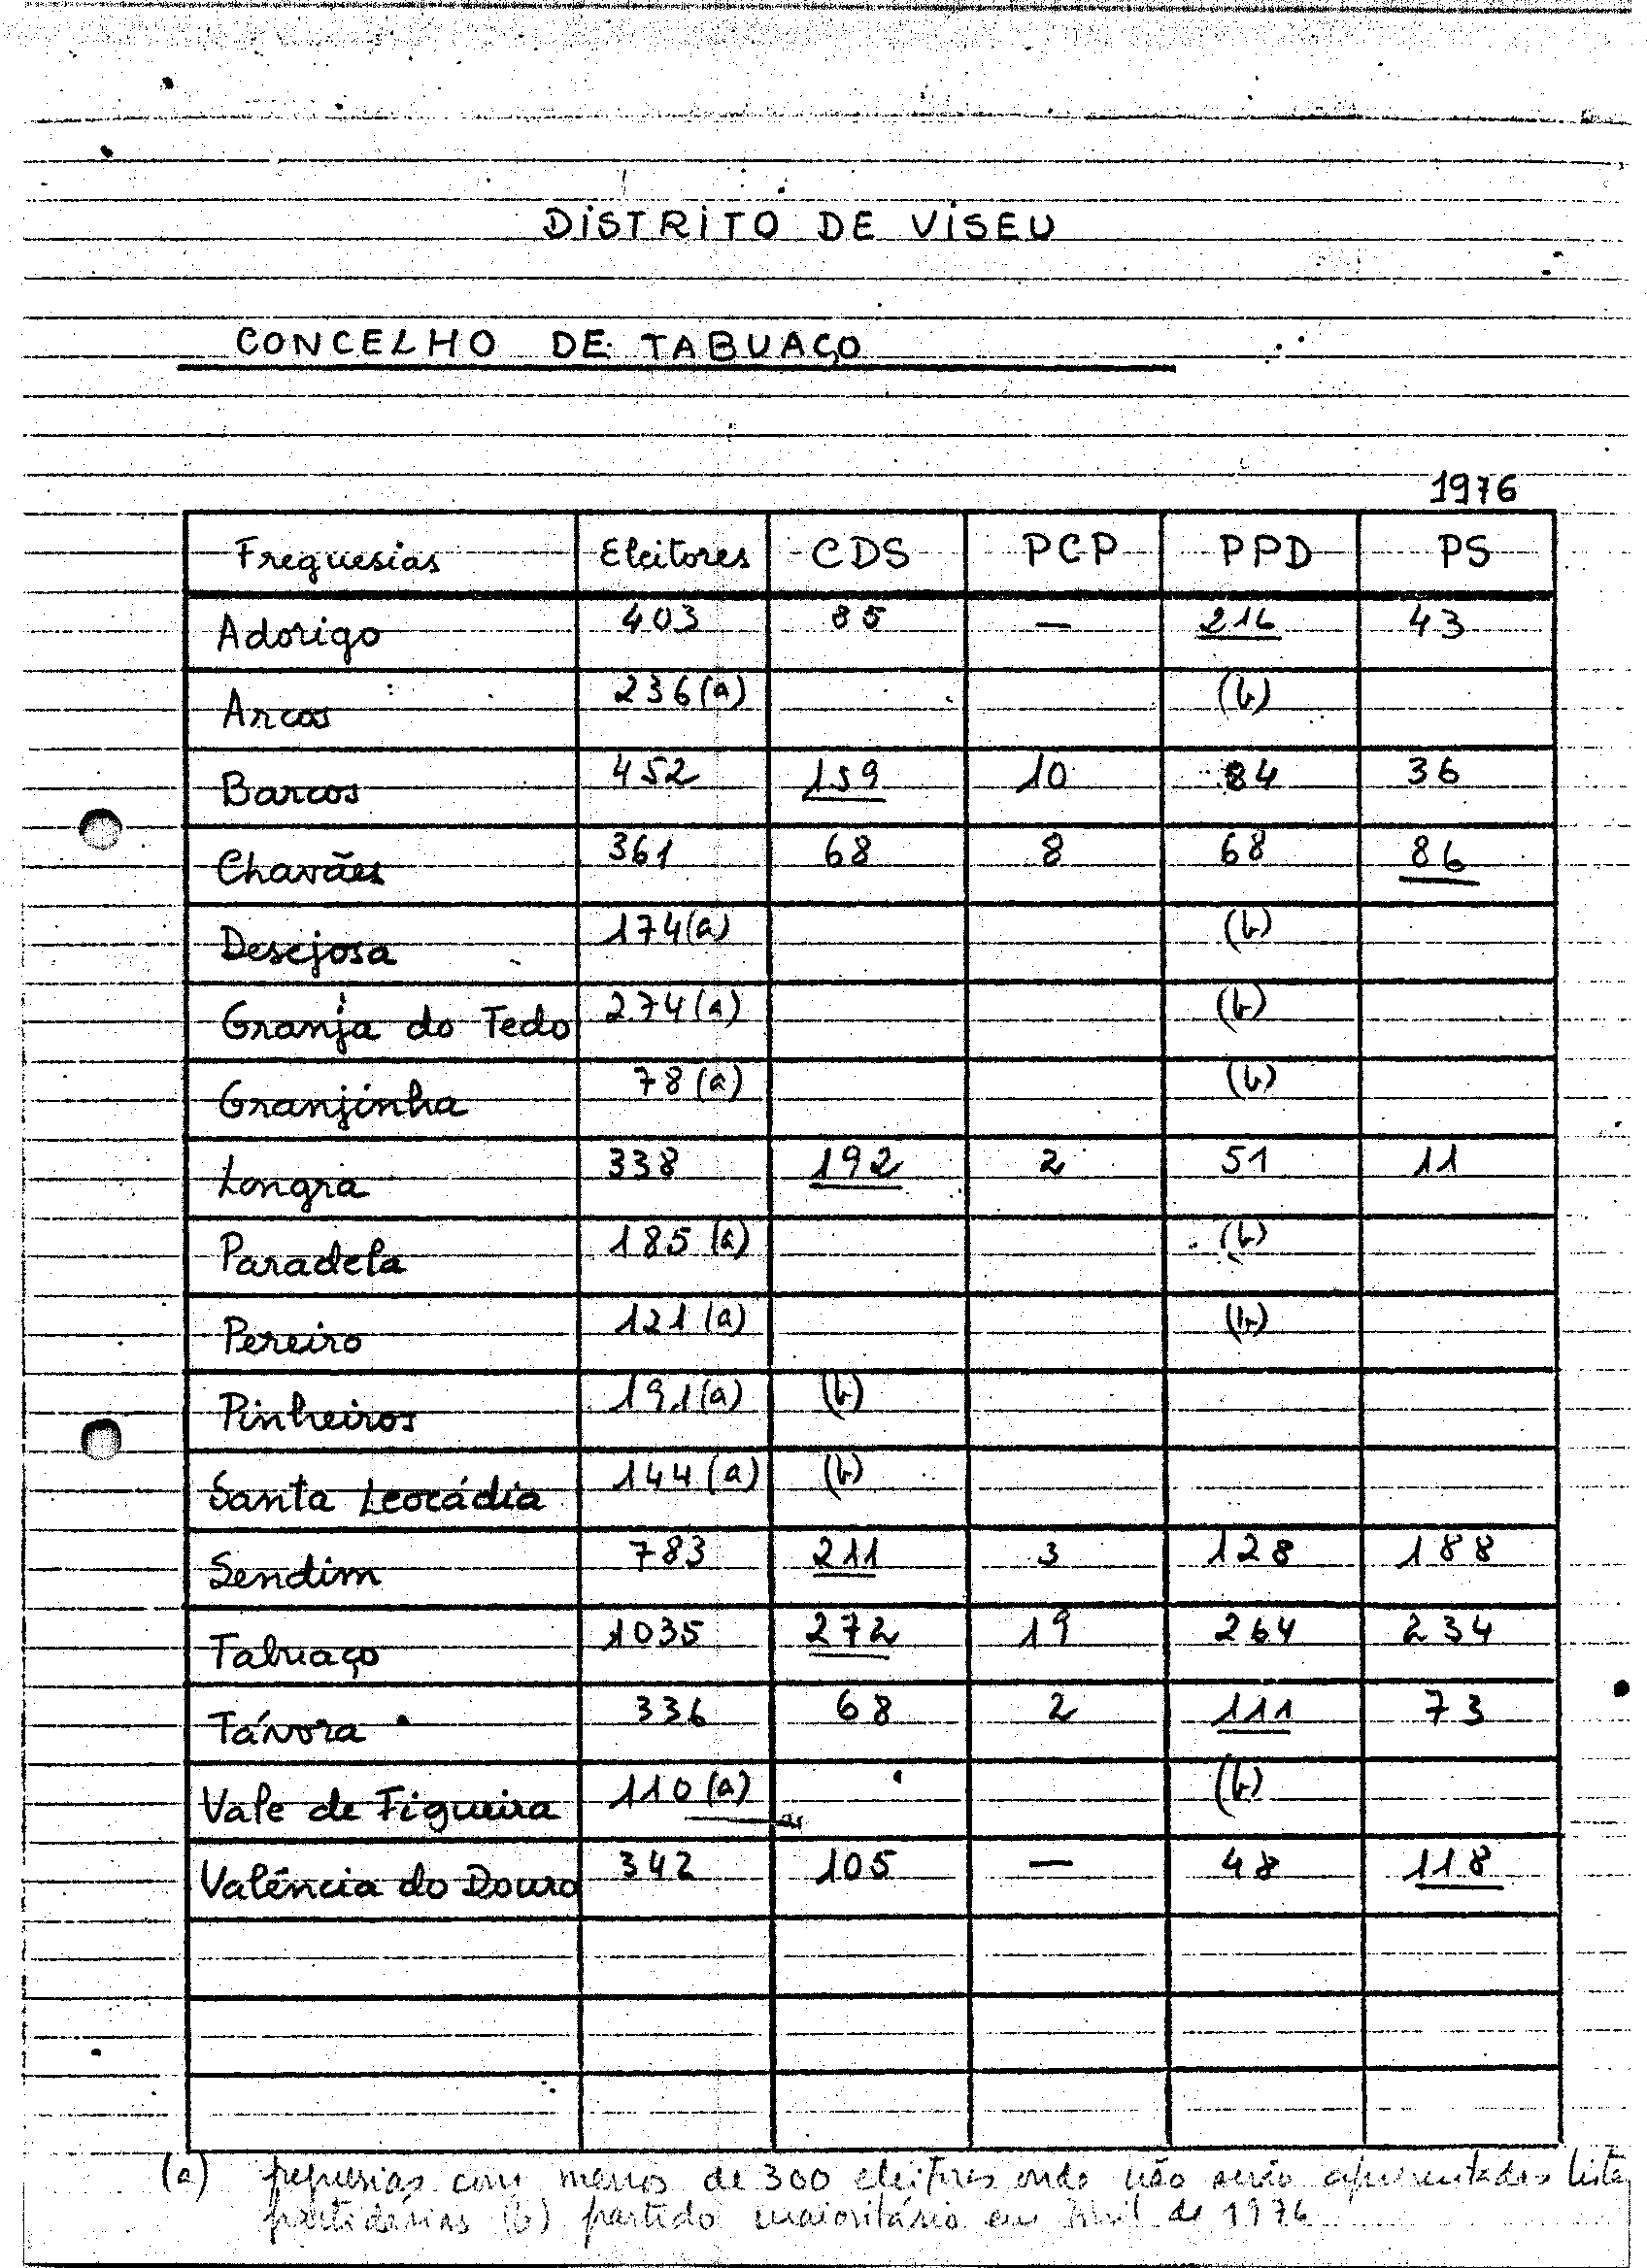 DISTRITO DE VISEU
CONCELHO DE TABUAÇO
1976
Freguesias Eleitores CDS PCP PPD PS
Adorigo 403 85 — 216 43
Arcos 236 (a) (b)
Barcos 452 159 10 84 36
Chavães 361 68 8 68 86
Desejosa 174 (a) (b)
Granja do Tedo 274 (a) (b)
Granjinha 78 (a) (b)
Longra 338 192 2 51 11
Paradela 185 (a) (b)
Pereiro 121 (a) (b)
Pinheiros 191 (a) (b)
Santa Leocádia 144 (a) (b)
Sendim 783 211 3 128 188
Tabuaço 1035 272 19 264 234
Távora 336 68 2 111 73
Vale de Figueira 110 (a) (b)
Valência do Douro 342 105 — 48 118
(a) freguesias com menos de 300 eleitores onde não serão apresentadas listas
partidárias (b) partido maioritário em Abril de 1976